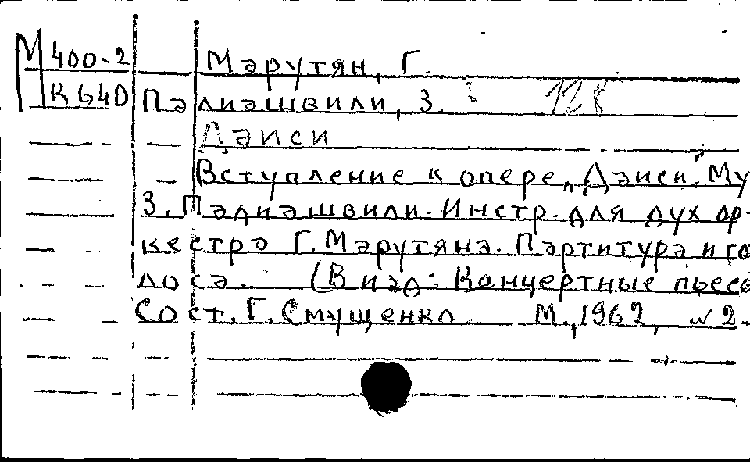 М 400-2 Марутян, Г.
К640 Палиашвили, З. 128
Даиси
Вступление к опере „Даиси." Му
З. Палиашвили. Инстр. для дух ор-
кестра Г. Марутяна. Партитура и го
лоса. (В изд: Концертные пьесы
Сост. Г. Смущенко М., 1962, № 2.